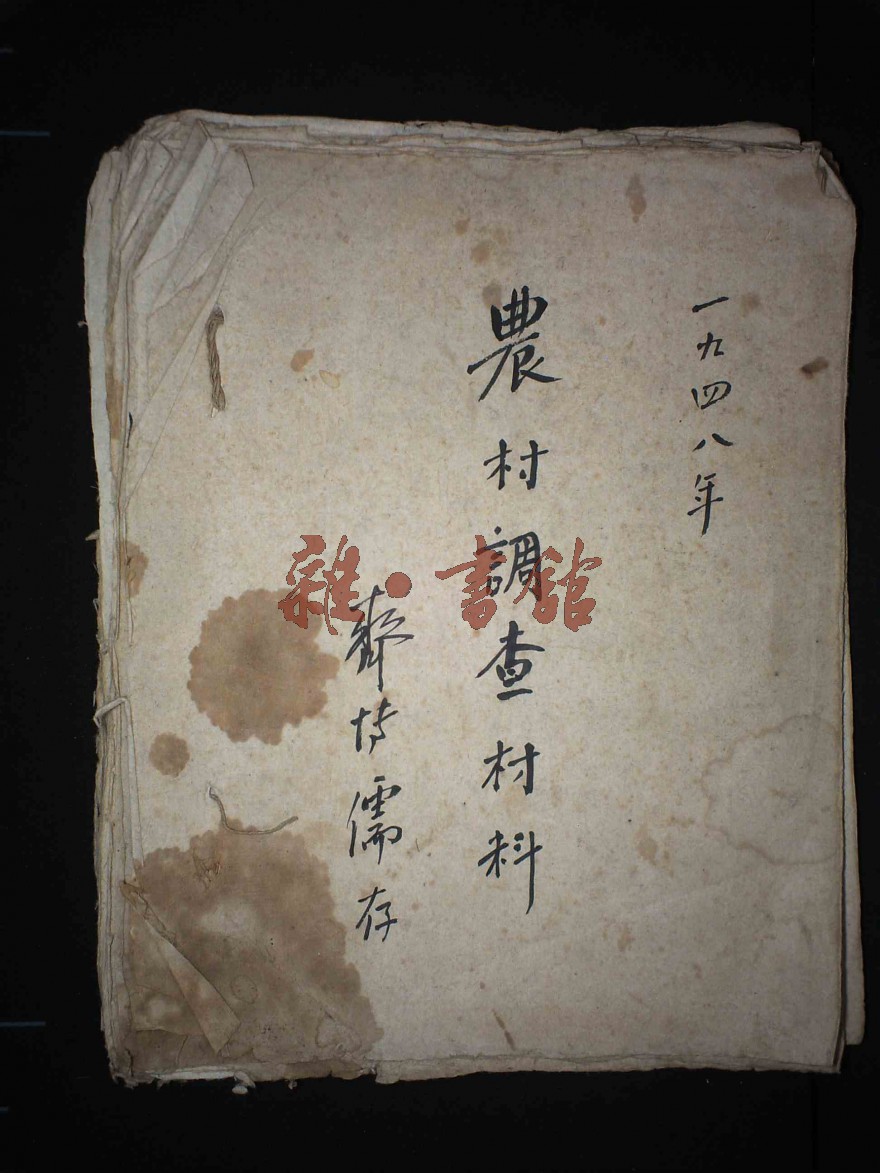 一九四八年
農村調查材料
儒存
雜·書館